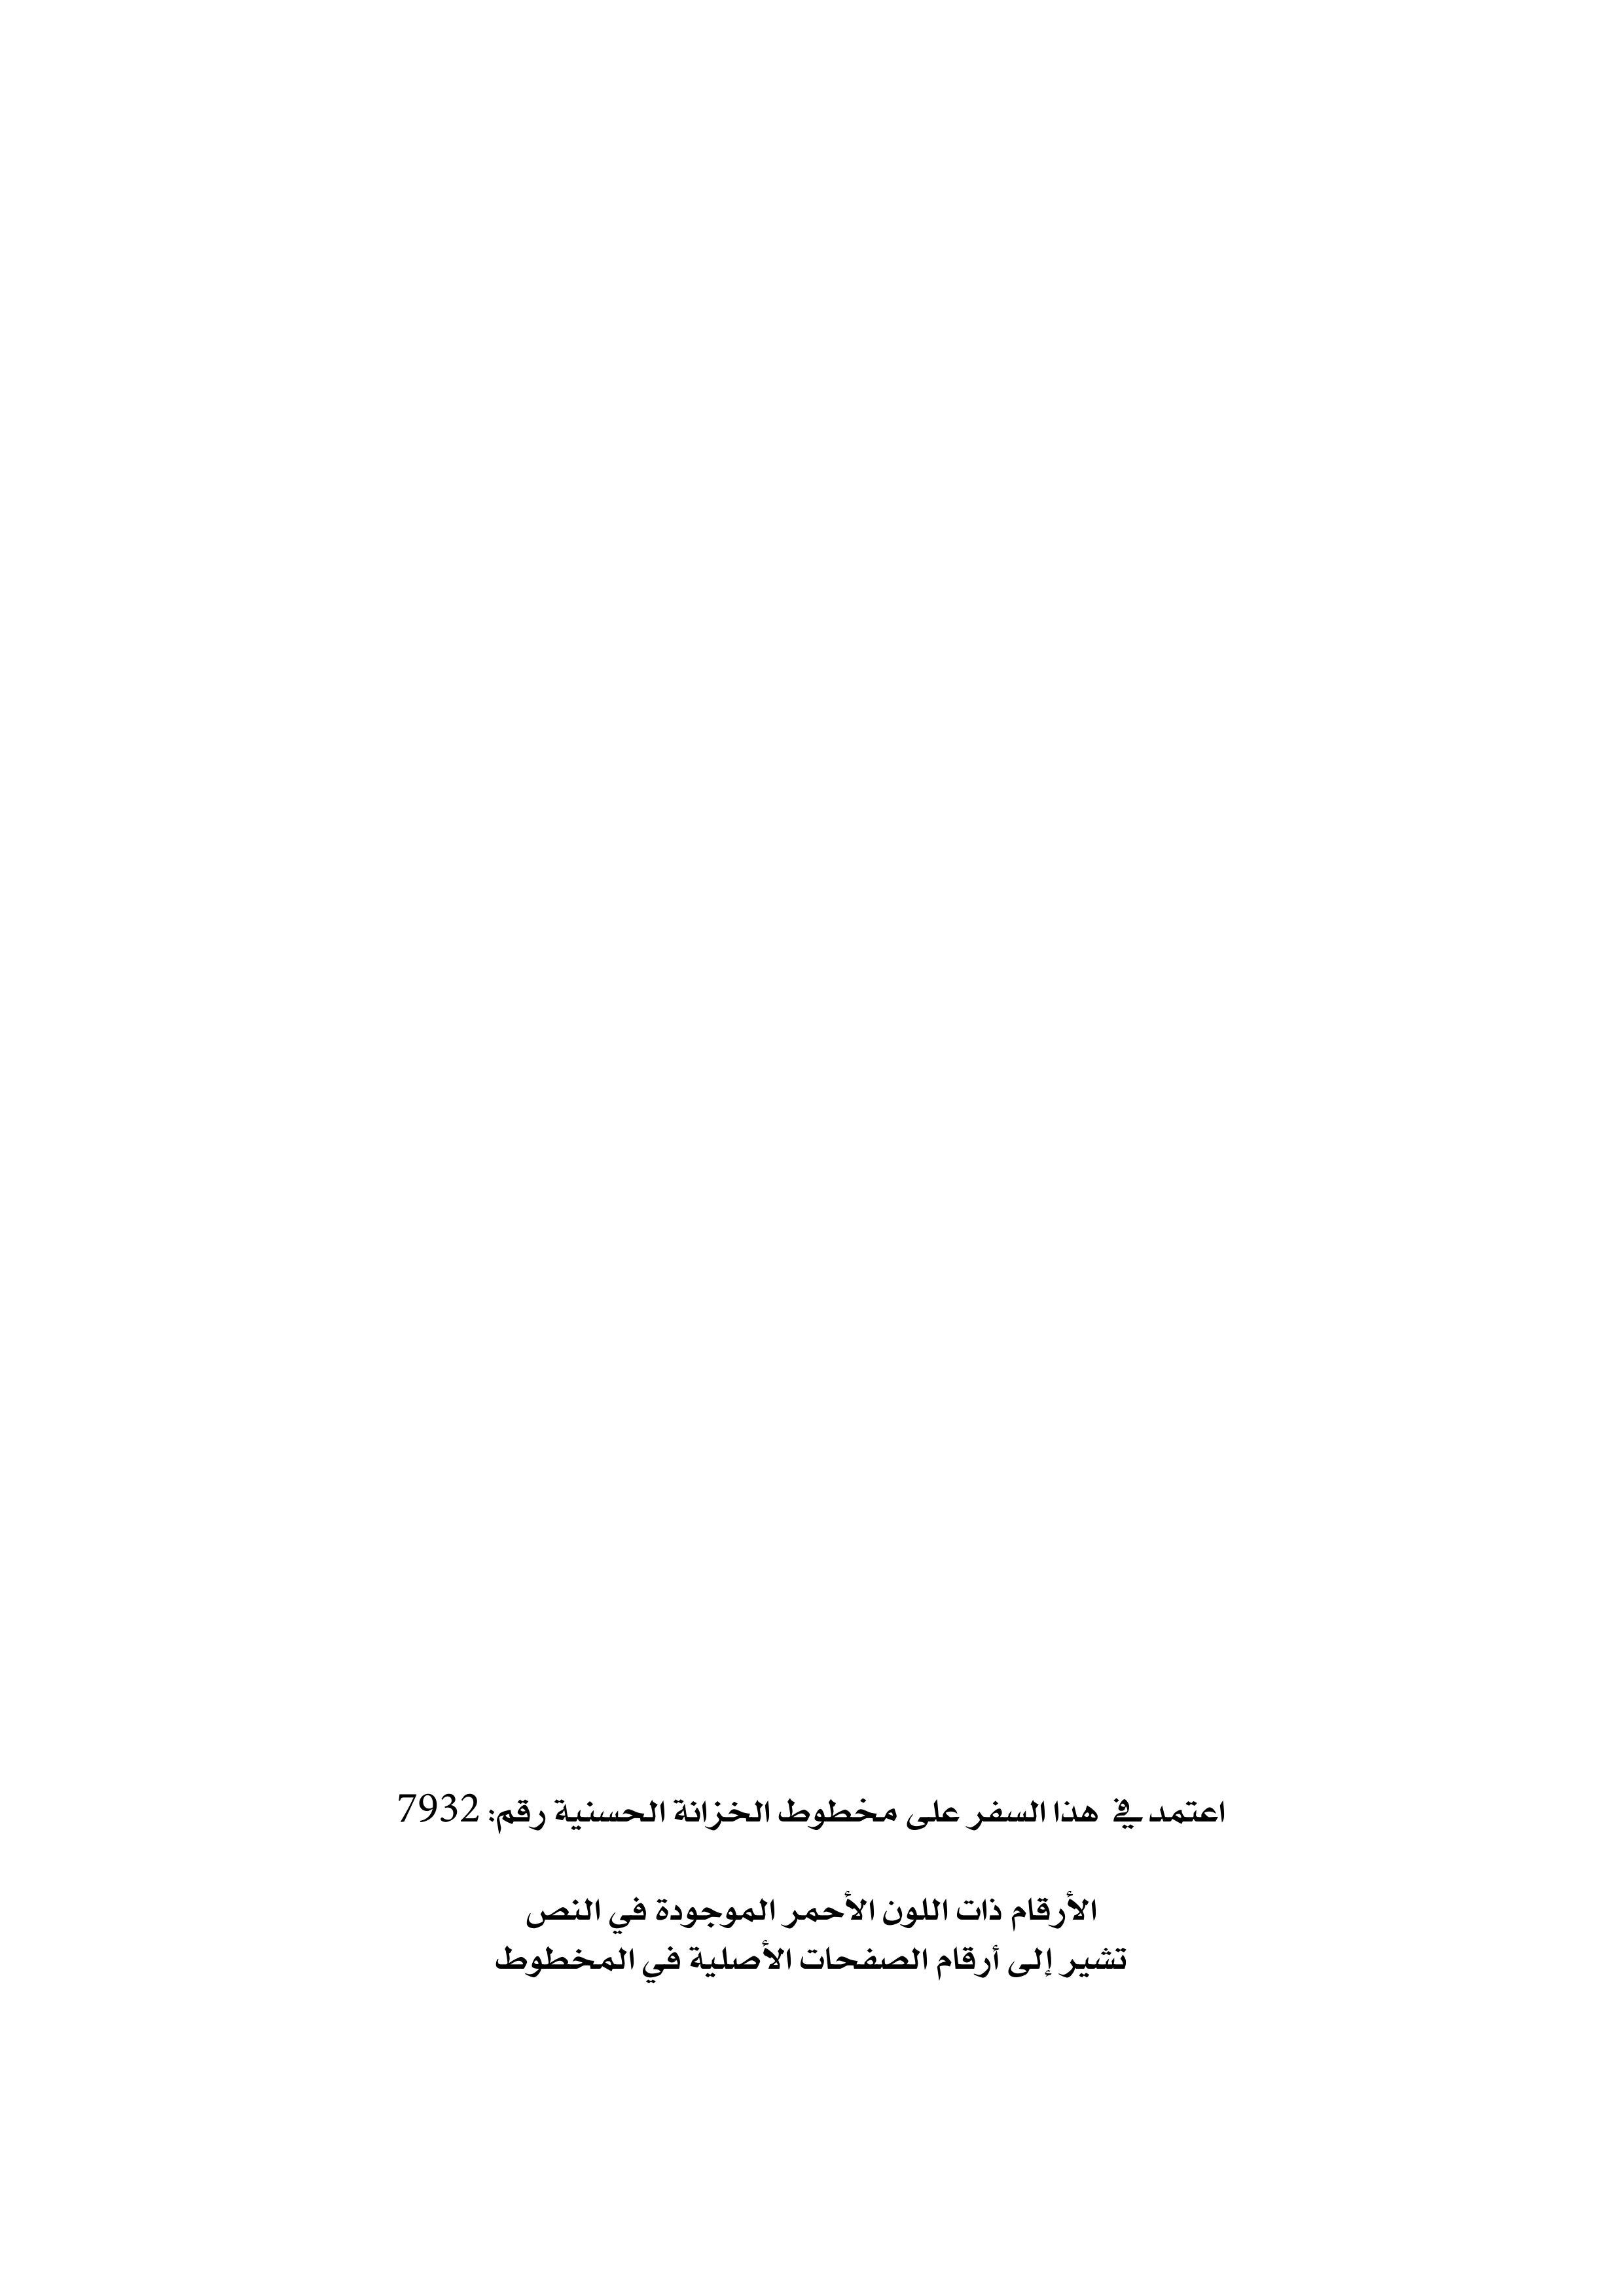 اعتمد في هذا السفر على مخطوط الخزانة الحسنية رقم: 7932
الأرقام ذات اللون الأحمر الموجودة في النص
تشير إلى أرقام الصفحات الأصلية في المخطوط